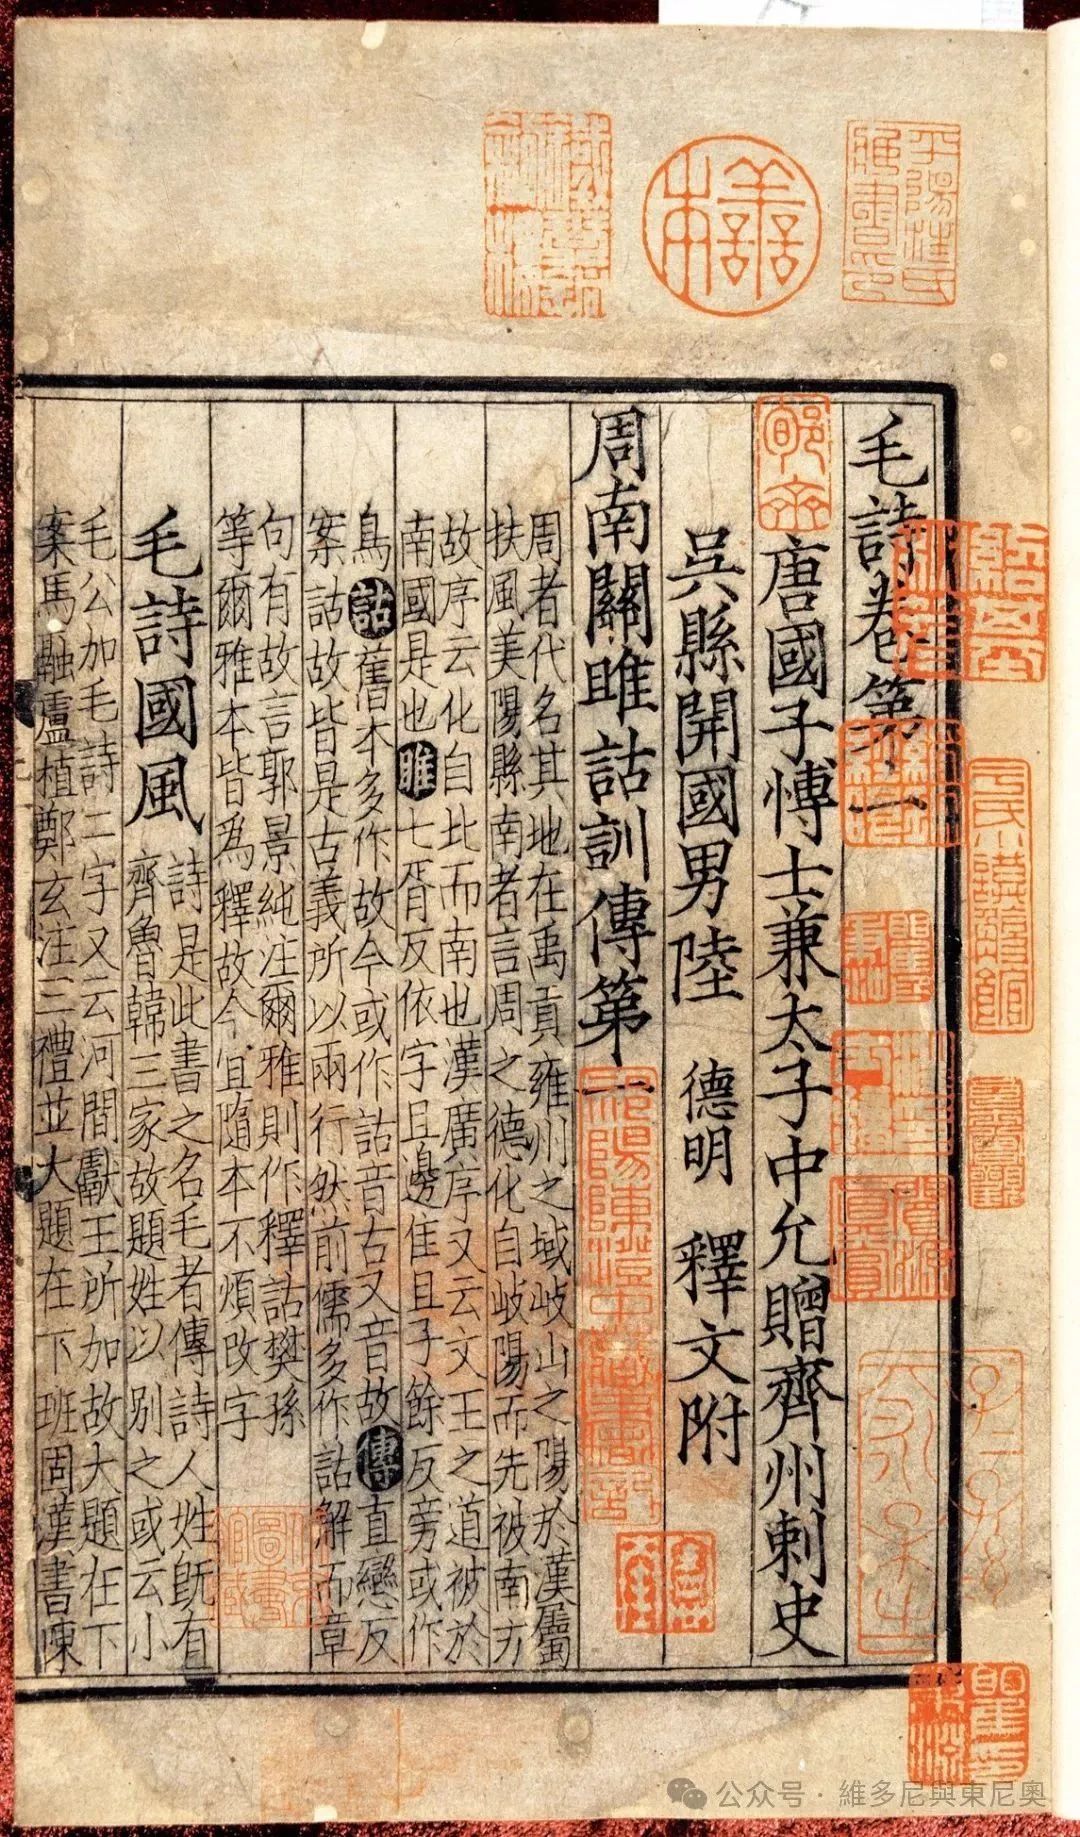 善本
平陽汪氏藏書印
毛詩卷第一
郇齋
唐國子博士兼太子中允贈齊州刺史
吳縣開國男陸 德明 釋文附
周南關雎詁訓傳第一
祁陽陳澄中藏書記
周者代名其地在禹貢雍州之域岐山之陽於漢屬
扶風美陽縣南者言周之德化自岐陽而先被南方
故序云化自北而南也漢廣序又云文王之道被於
南國是也雎七胥反依字且邊隹且子餘反旁或作
鳥詁舊本多作故今或作詁音古又音故傳直戀反
案詁故皆是古義所以兩行然前儒多作詁解而章
句有故言郭景純注爾雅則作釋詁樊孫
等爾雅本皆爲釋故今宜隨本不煩改字
毛詩國風
詩是此書之名毛者傳詩人姓旣有
齊魯韓三家故題姓以别之或云小
毛公加毛詩二字又云河間獻王所加故大題在下
案馬融盧植鄭玄注三禮並大題在下班固漢書陳
公众号 · 維多尼與東尼奧